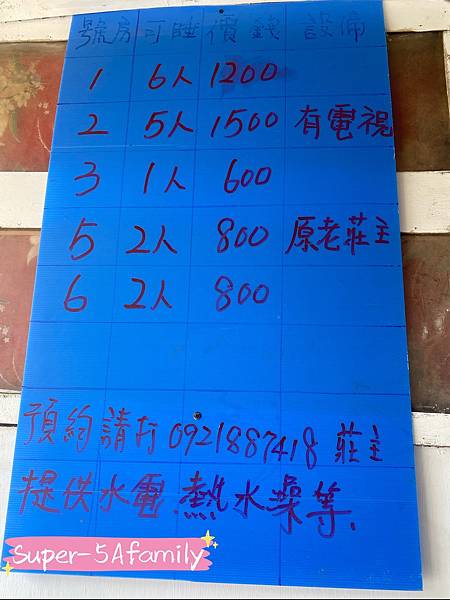 號房 可睡 價錢 設備
1 6人 1200
2 5人 1500 有電視
3 1人 600
5 2人 800 原老莊主
6 2人 800
預約請打0921887418 莊主
提供水電.熱水澡等.
Super-5Afamily